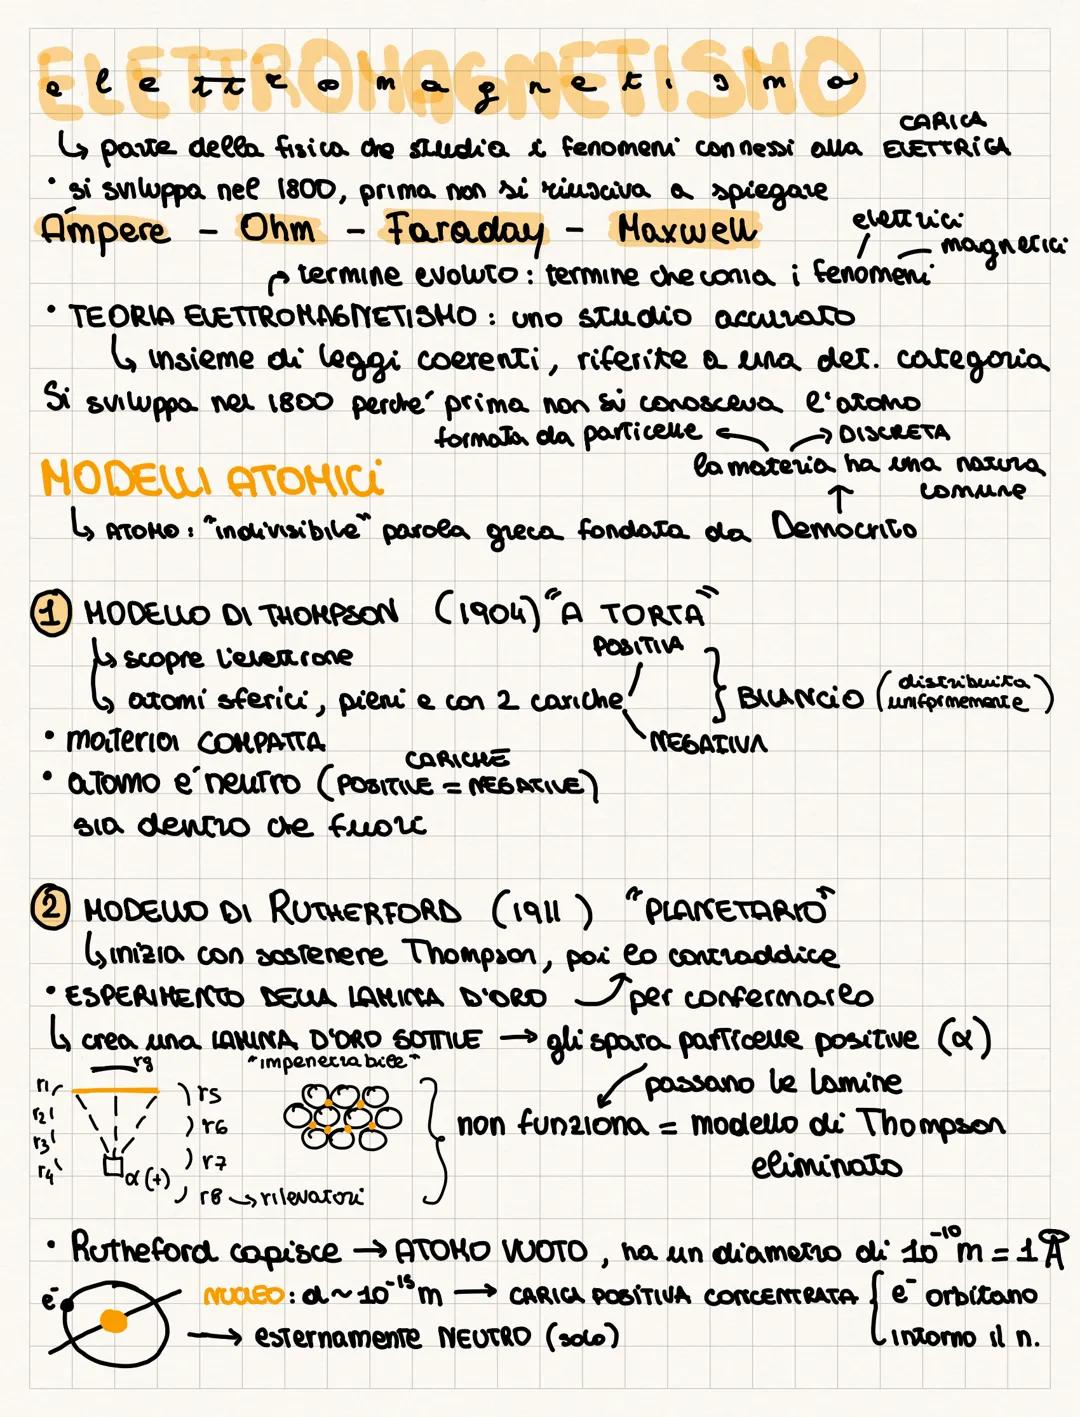 ELETTROMAGNETISMO
elettromagnetismo
↳ parte della fisica che studia i fenomeni connessi alla CARICA ELETTRICA
• si sviluppa nel 1800, prima non si riusciva a spiegare
Ampere - Ohm - Faraday - Maxwell
elettrici
magnetici
termine evoluto: termine che conia i fenomeni
• TEORIA ELETTROMAGNETISMO: uno studio accurato
↳ insieme di leggi coerenti, riferite a una det. categoria
Si sviluppa nel 1800 perche' prima non si conosceva l'atomo
formata da particelle ← → DISCRETA
la materia ha una natura comune
MODELLI ATOMICI
↳ ATOMO: "indivisibile" parola greca fondata da Democrito
1 MODELLO DI THOMPSON (1904) "A TORTA"
↳ scopre l'elettrone
↳ atomi sferici, pieni e con 2 cariche
POSITIVA
NEGATIVA
BILANCIO (distribuita uniformemente)
• materia COMPATTA
• atomo e' neutro (CARICHE POSITIVE = NEGATIVE)
sia dentro che fuori
2 MODELLO DI RUTHERFORD (1911) "PLANETARIO"
↳ inizia con sostenere Thompson, poi lo contraddice
• ESPERIMENTO DELLA LAMINA D'ORO per confermarlo
↳ crea una LAMINA D'ORO SOTTILE → gli spara particelle positive (α)
"impenetrabile"
passano le lamine
r9
r1
r2
r3
r4
α(+)
r5
r6
r7
r8 → rilevatori
non funziona = modello di Thompson
eliminato
• Rutheford capisce → ATOMO VUOTO, ha un diametro di 10⁻¹⁰ m = 1 Å
e⁻
NUCLEO: d ~ 10⁻¹⁵ m → CARICA POSITIVA CONCENTRATA { e⁻ orbitano
intorno il n.
→ esternamente NEUTRO (solo)